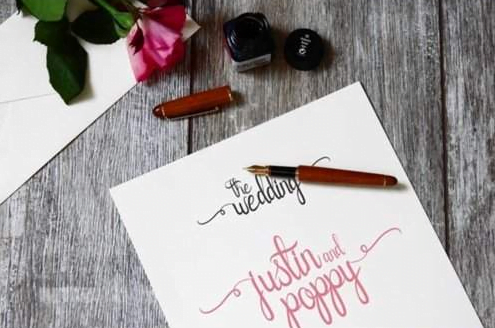 the
wedding
justin and
poppy